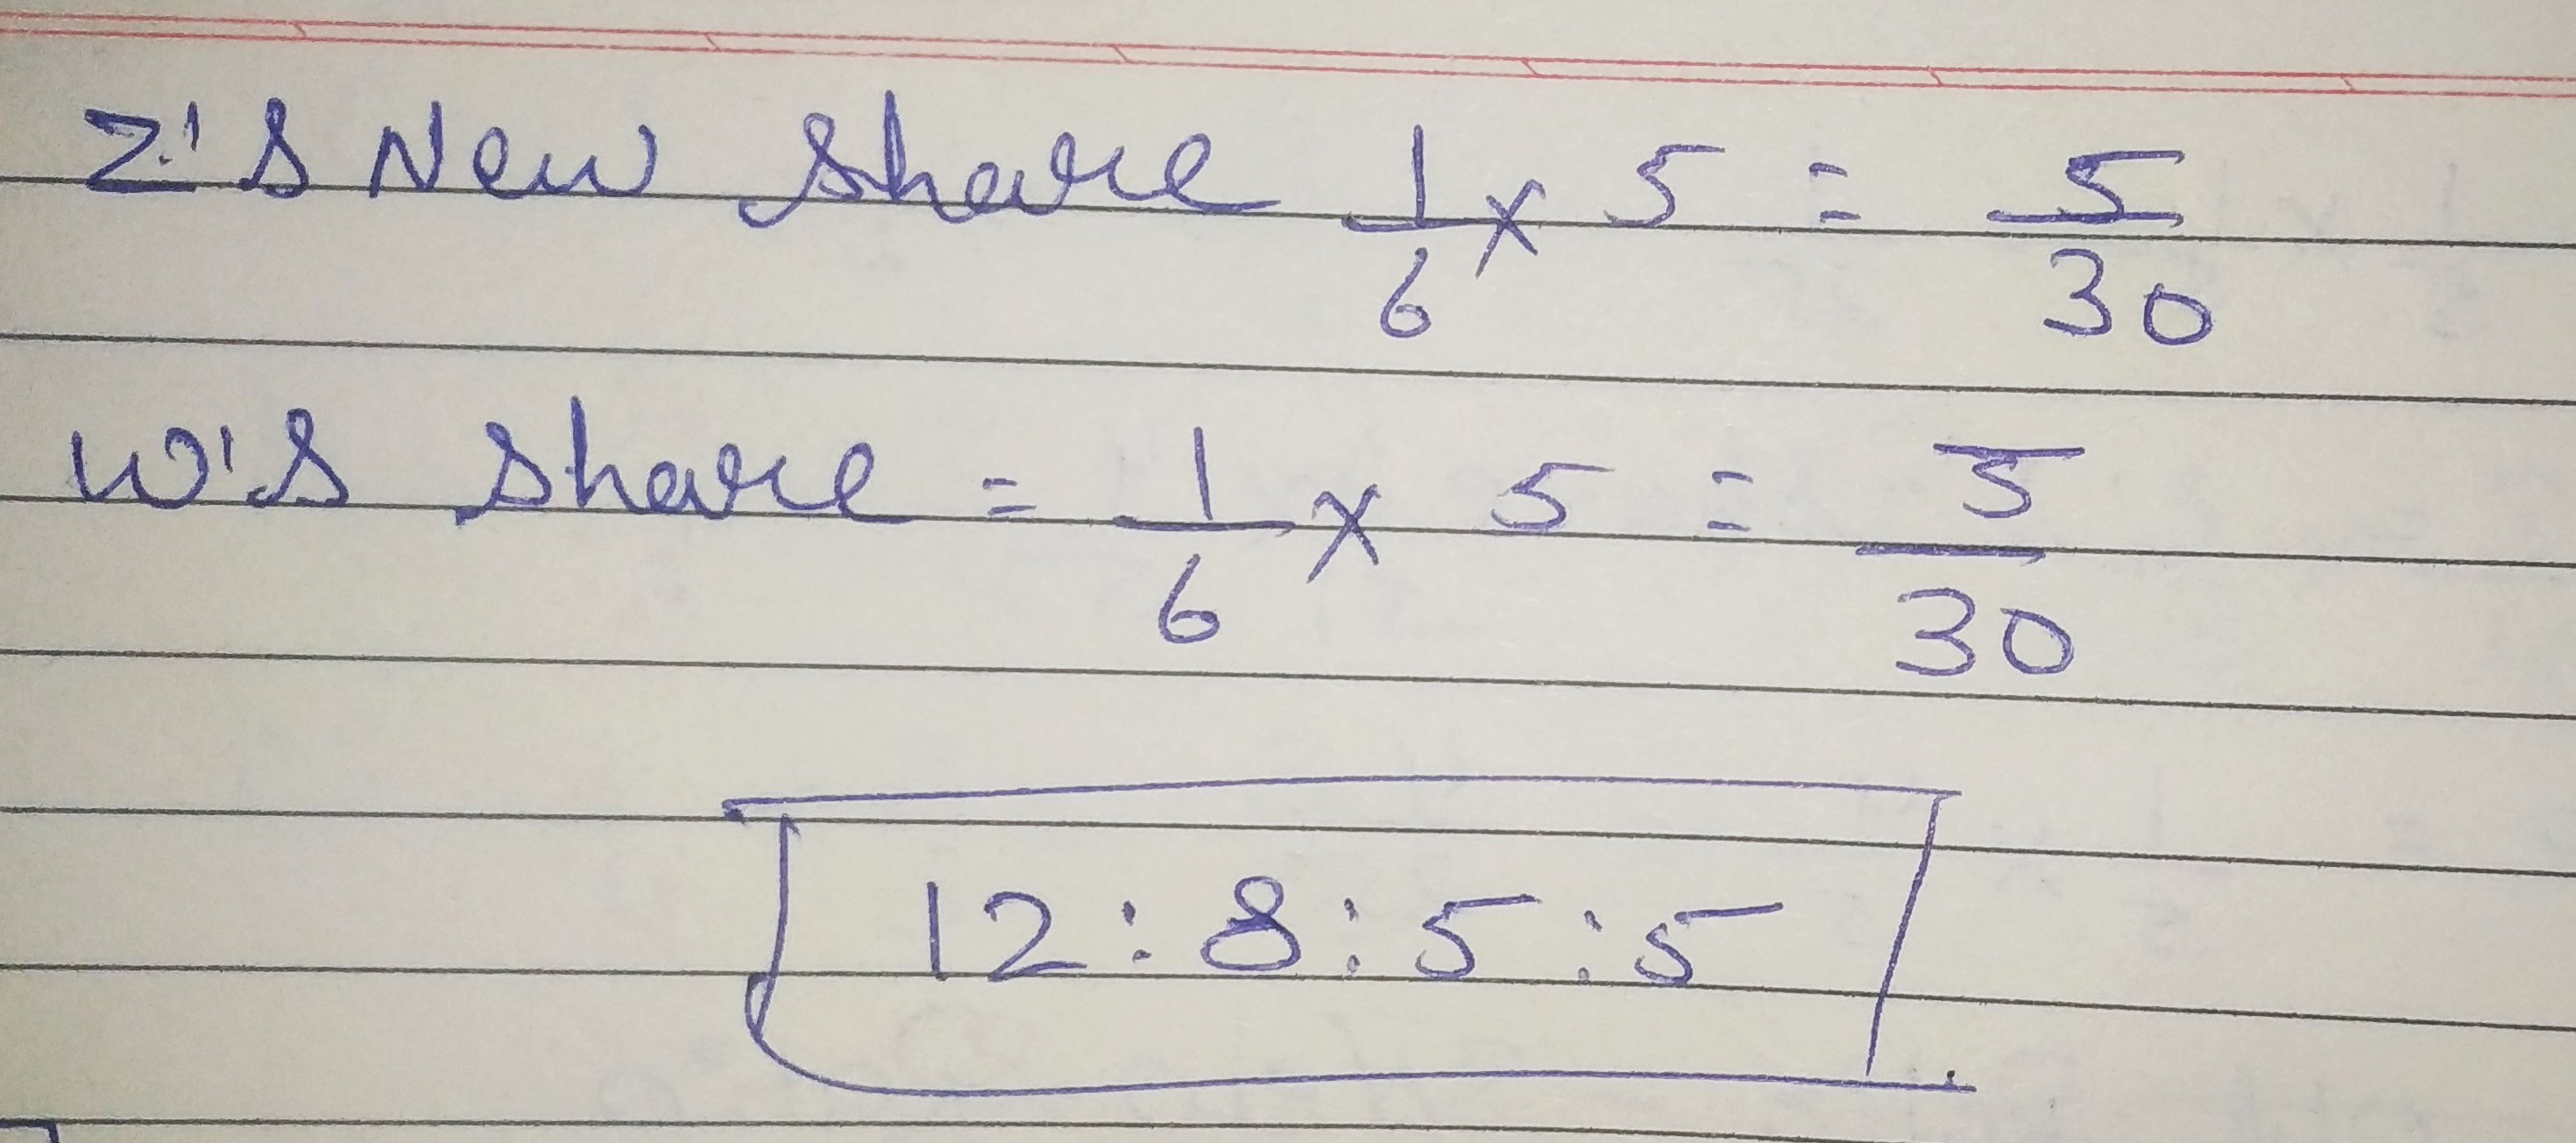 Z's New share 1/6 × 5 = 5/30
W's share = 1/6 × 5 = 5/30
12:8:5:5